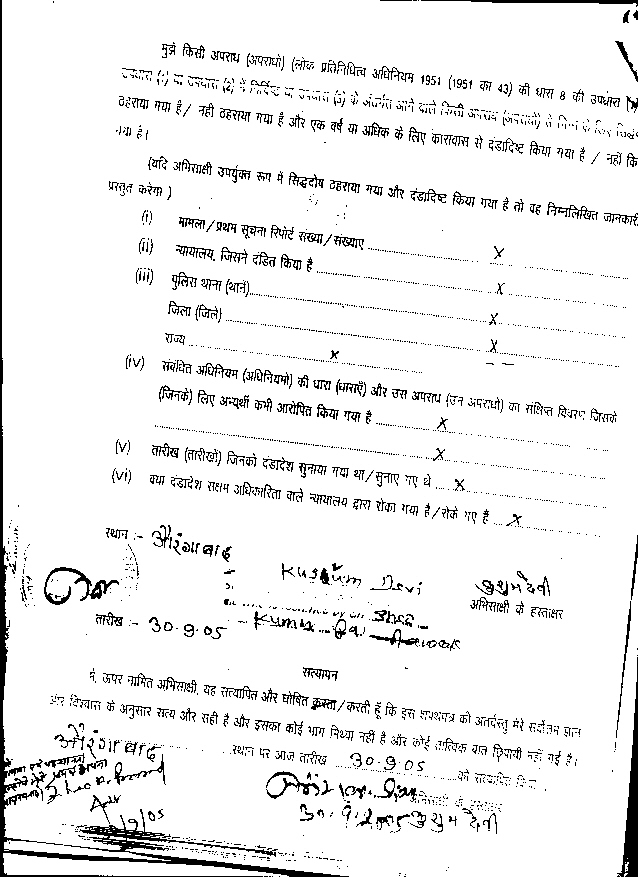 मुझे किसी अपराध (अपराधों) (लोक प्रतिनिधित्व अधिनियम 1951 (1951 का 43) की धारा 8 की उपधारा
उपधारा (1) या उपधारा (2) में निर्दिष्ट या उपधारा (3) के अंतर्गत आने वाले किसी अपराध (अपराधों) से भिन्न के लिए
ठहराया गया है / नहीं ठहराया गया है और एक वर्ष या अधिक के लिए कारावास से दंडादिष्ट किया गया है / नहीं कि
गया है।
(यदि अभिसाक्षी उपर्युक्त रूप में सिद्धदोष ठहराया गया और दंडादिष्ट किया गया है तो वह निम्नलिखित जानकारी
प्रस्तुत करेगा )
(i) मामला / प्रथम सूचना रिपोर्ट संख्या / संख्याए ........ X
(ii) न्यायालय, जिसने दंडित किया है ........ X
(iii) पुलिस थाना (थाने)........ X
जिला (जिले) ........ X
राज्य ........ X
(iv) संबंधित अधिनियम (अधिनियमों) की धारा (धाराएँ) और उस अपराध (उन अपराधों) का संक्षिप्त विवरण जिसके
(जिनके) लिए अभ्यर्थी कभी आरोपित किया गया है ........ X
........ X
(v) तारीख (तारीखों) जिनको दंडादेश सुनाया गया था / सुनाए गए थे ... X
(vi) क्या दंडादेश सक्षम अधिकारिता वाले न्यायालय द्वारा रोका गया है / रोके गए हैं ... X
स्थान :- औरंगाबाद
Kusum Devi
कुसुम देवी
अभिसाक्षी के हस्ताक्षर
तारीख :- 30.9.05
Kumar
सत्यापन
मैं, ऊपर नामित अभिसाक्षी, यह सत्यापित और घोषित करता / करती हूँ कि इस शपथपत्र की अंतर्वस्तु मेरे सर्वोतम ज्ञान
और विश्वास के अनुसार सत्य और सही है और इसका कोई भाग मिथ्या नहीं है और कोई तात्विक बात छिपायी नहीं गई है।
औरंगाबाद स्थान पर आज तारीख 30.9.05 को सत्यापित किया
अभिसाक्षी के हस्ताक्षर
कुसुम देवी